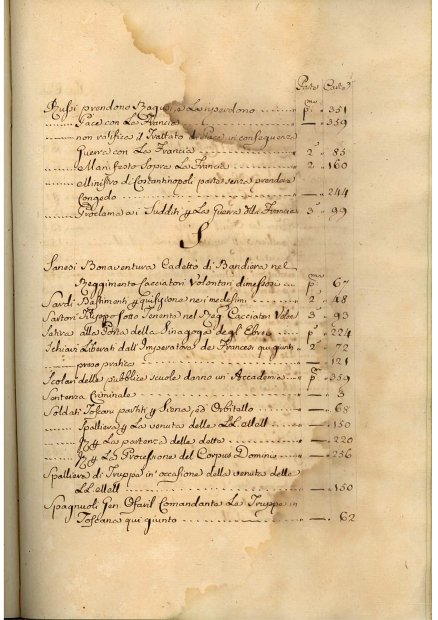 Parte Carte
Russi prendono Bagusi e La sperdono p.ma 351
Pace con La Francia — 359
non ratifica il Trattato di Pace in consequenza
Guerra con La Francia 2.a 85
Manifesto Sopra La Francia 2.a 160
Ministro di Costantinopoli parte senza prendere
Congedo — 244
Proclama a i Sudditi p La Guerra alla Francia 3.a 99
S
Sanesi Bonaventura Cadetto di Bandiera nel
Reggimento Cacciatori Volontari dimessosi p.ma 67
Sardi Bastimenti 2.a 48
Sartori Filippo Sotto Tenente nel Reg. Cacciatori 3.a 93
Satira alla Porta della Sinagoga degl' Ebrei p.ma 224
Schiavi Liberati dall' Imperatore de Francesi qui giunti 2.a 72
presa pratica — 121
Scolari delle pubbliche scuole danno un' Accademia p.ma 359
Sentenza Criminale — 3
Soldati Toscani partiti p Siena, ed Orbitello — 68
Spalliera p La venuta delle LL. MM. — 150
p La partenza delle dette — 220
p La Processione del Corpus Domini — 236
Spalliera di Truppa in occasione della venuta delle
LL. MM. — 150
Spagnuoli Gen. Ofaril Comandante La Truppa in
Toscana qui giunto — 62